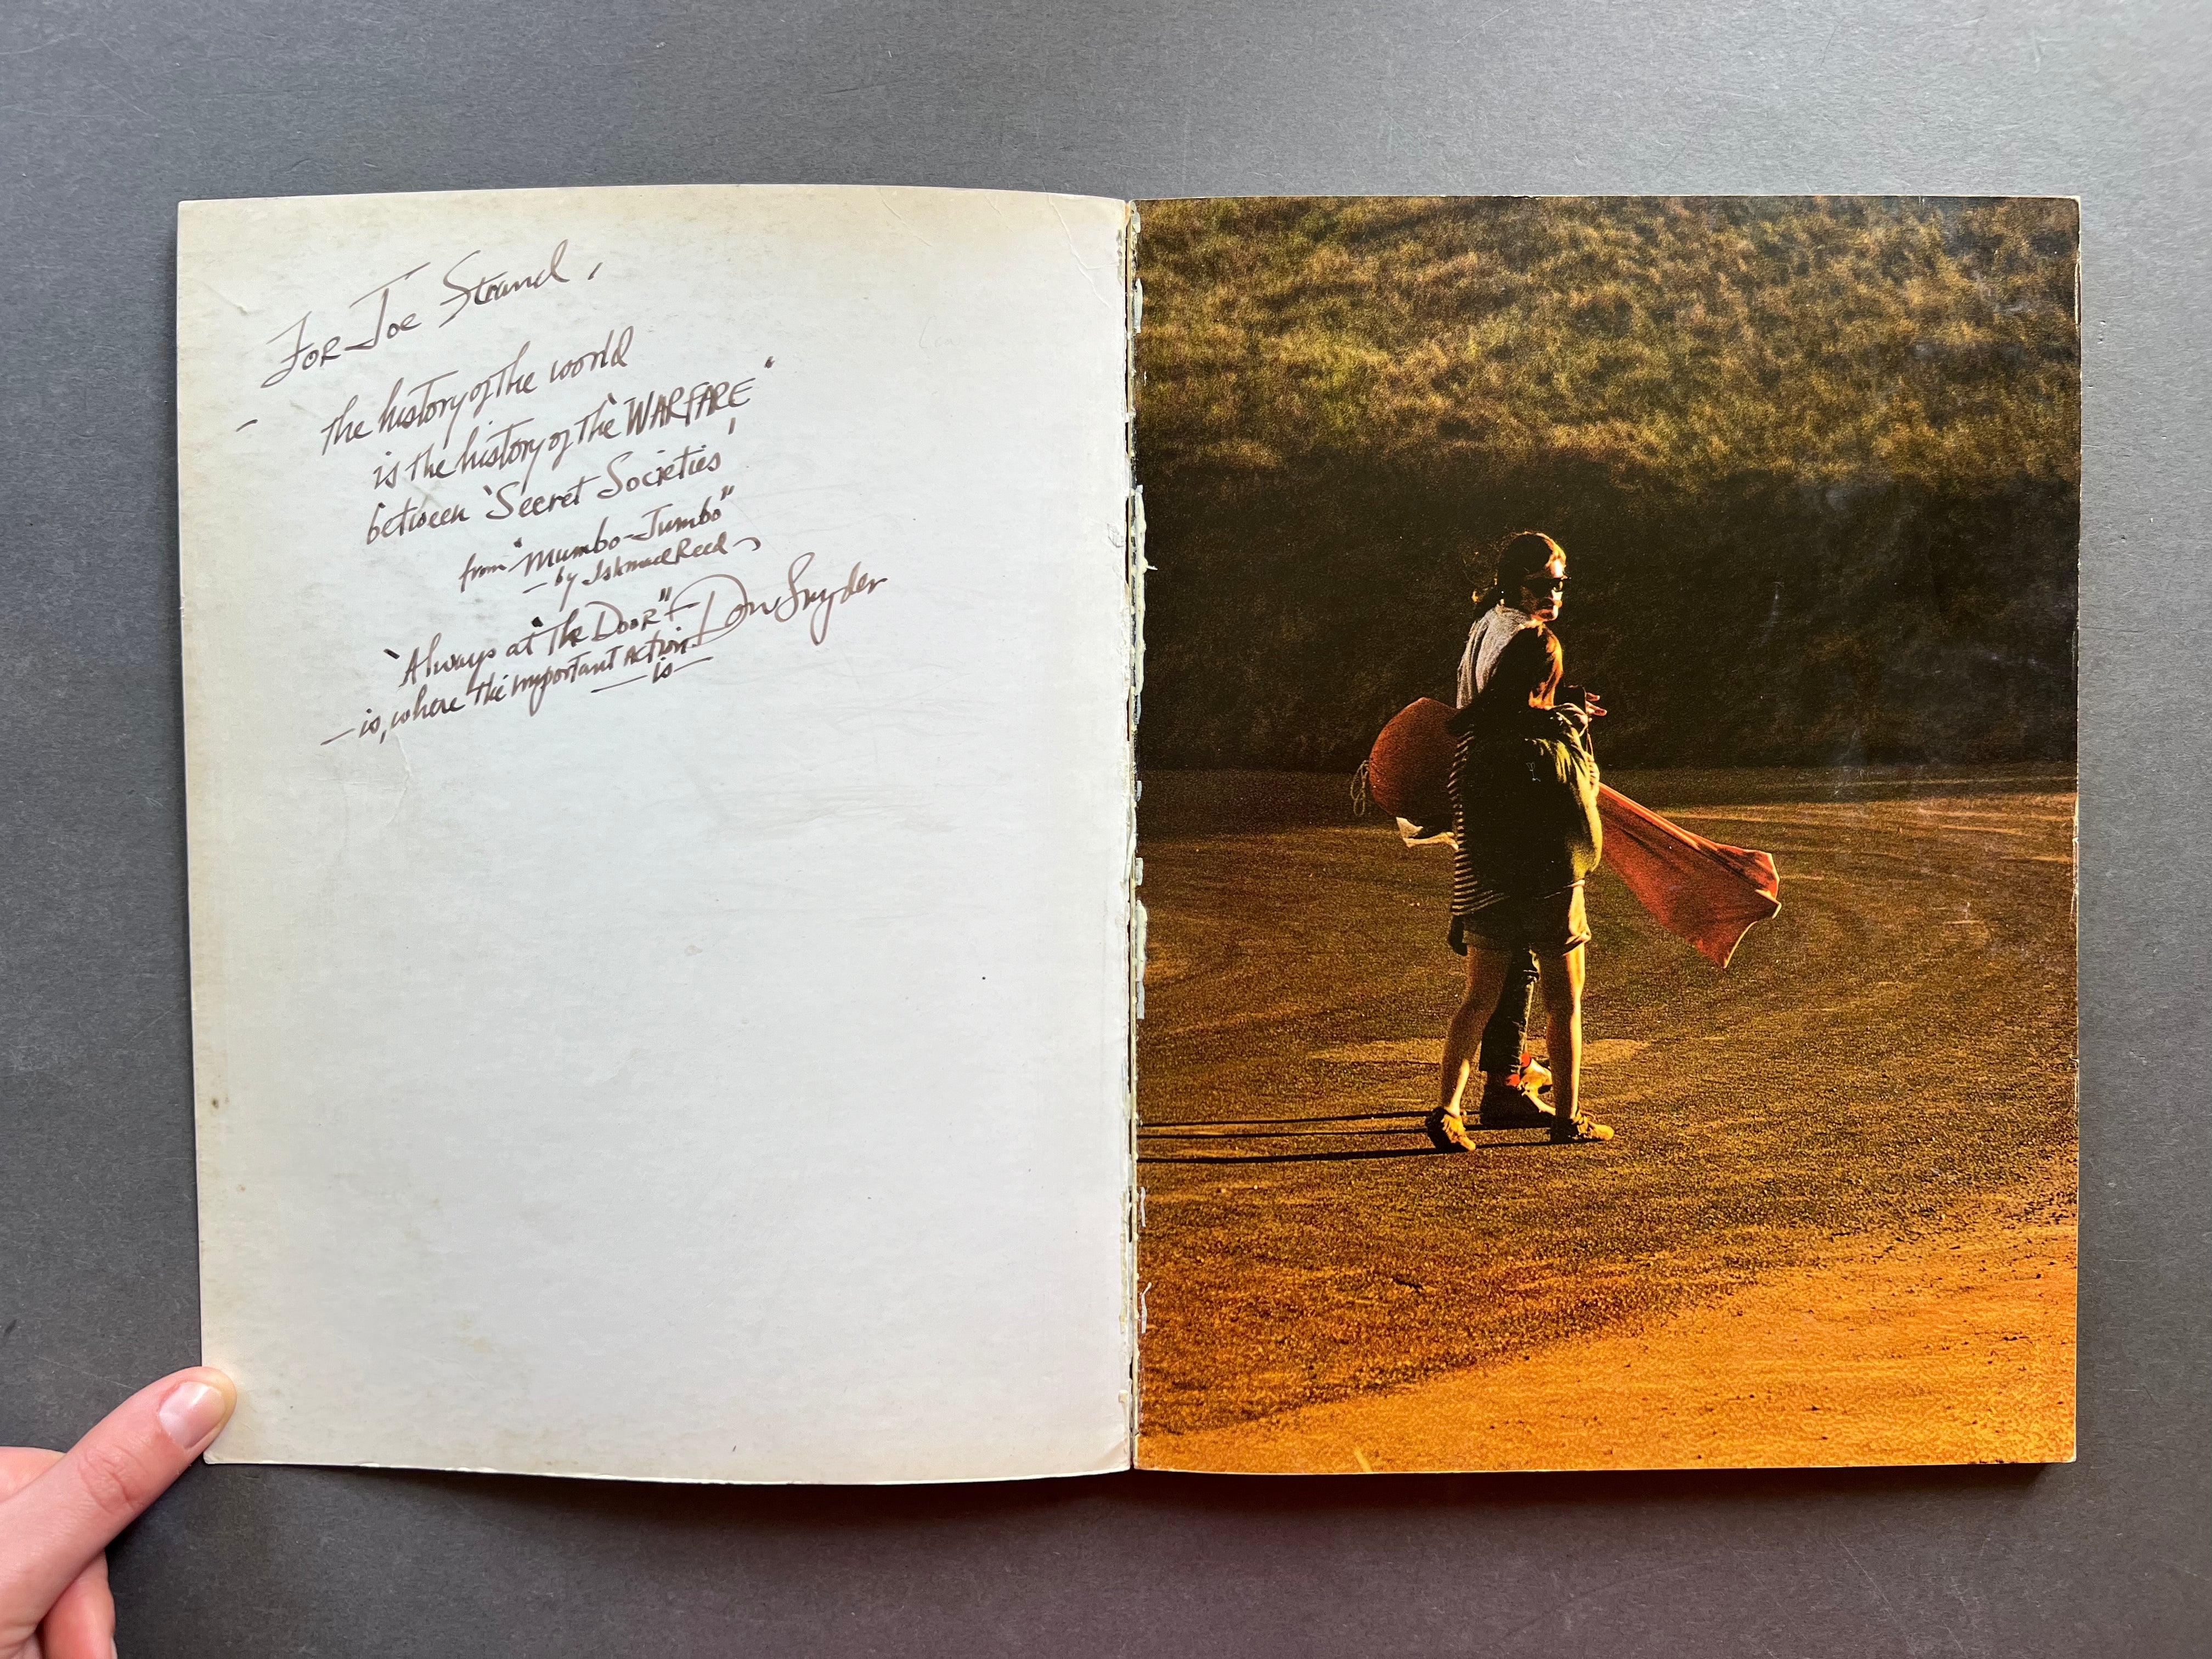 For Joe Strand,
— the history of the world
is the history of the "WARFARE"
between 'Secret Societies'
from "Mumbo-Jumbo"
— by Ishmael Reed —
"Always at "The Door" — Don Snyder
— is, where the important action
— is —